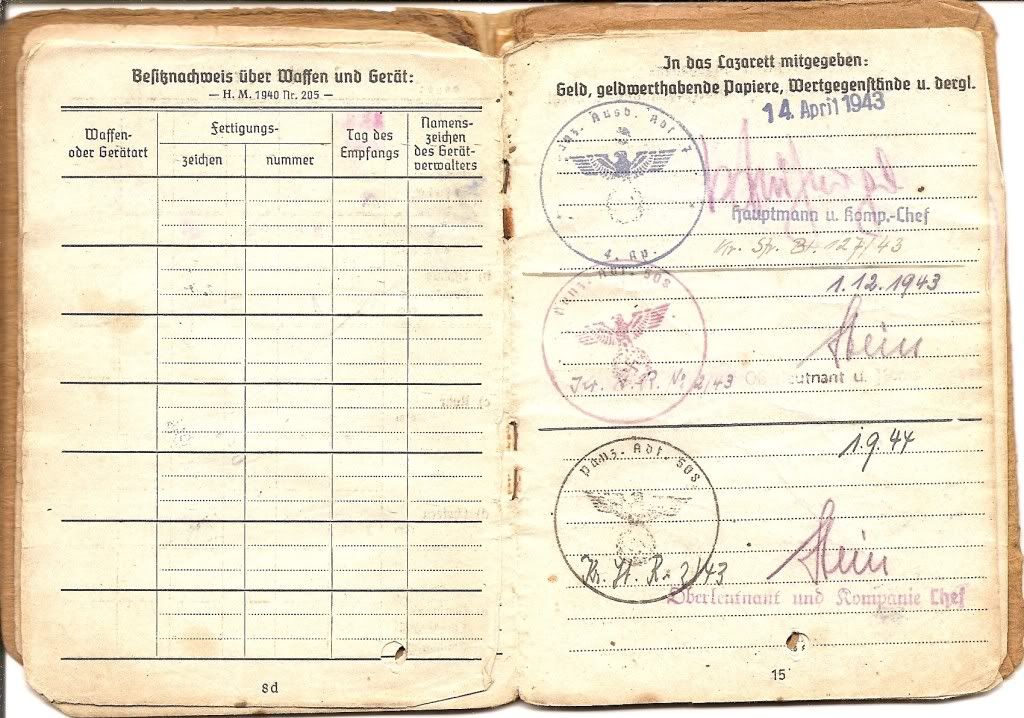 Besitznachweis über Waffen und Gerät:
— H. M. 1940 Nr. 205 —
Waffen-
oder Gerätart
Fertigungs-
zeichen
nummer
Tag des
Empfangs
Namens-
zeichen
des Gerät-
verwalters
8d
In das Lazarett mitgegeben:
Geld, geldwerthabende Papiere, Wertgegenstände u. dergl.
14. April 1943
Panz. Ausb. Abt. 7
4. Kp.
Hauptmann u. Komp.-Chef
127/43
Panz. Abt. 508
1.12.1943
Stein
2/43
utnant u.
1.9.44
Panz. Abt. 508
Stein
2/43
Oberleutnant und Kompanie Chef
15